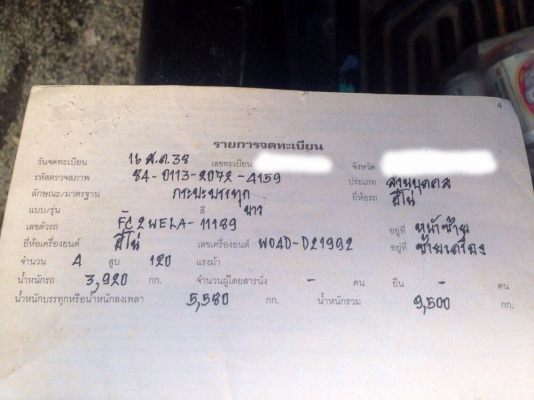 4
รายการจดทะเบียน
วันจดทะเบียน 16 ส.ค.38 เลขทะเบียน จังหวัด
รหัสตรวจสภาพ 84-0113-2072-4159 ประเภท ส่วนบุคคล
ลักษณะ/มาตรฐาน กระบะบรรทุก ยี่ห้อรถ ฮีโน่
แบบ/รุ่น สี ขาว
เลขตัวรถ FC2WELA-11189 อยู่ที่ หน้าซ้าย
ยี่ห้อเครื่องยนต์ ฮีโน่ เลขเครื่องยนต์ W04D-D21992 อยู่ที่ ซ้ายเครื่อง
จำนวน 4 สูบ 120 แรงม้า
น้ำหนักรถ 3,920 กก. จำนวนผู้โดยสารนั่ง - คน ยืน - คน
น้ำหนักบรรทุกหรือน้ำหนักลงเพลา 5,580 กก. น้ำหนักรวม 9,500 กก.